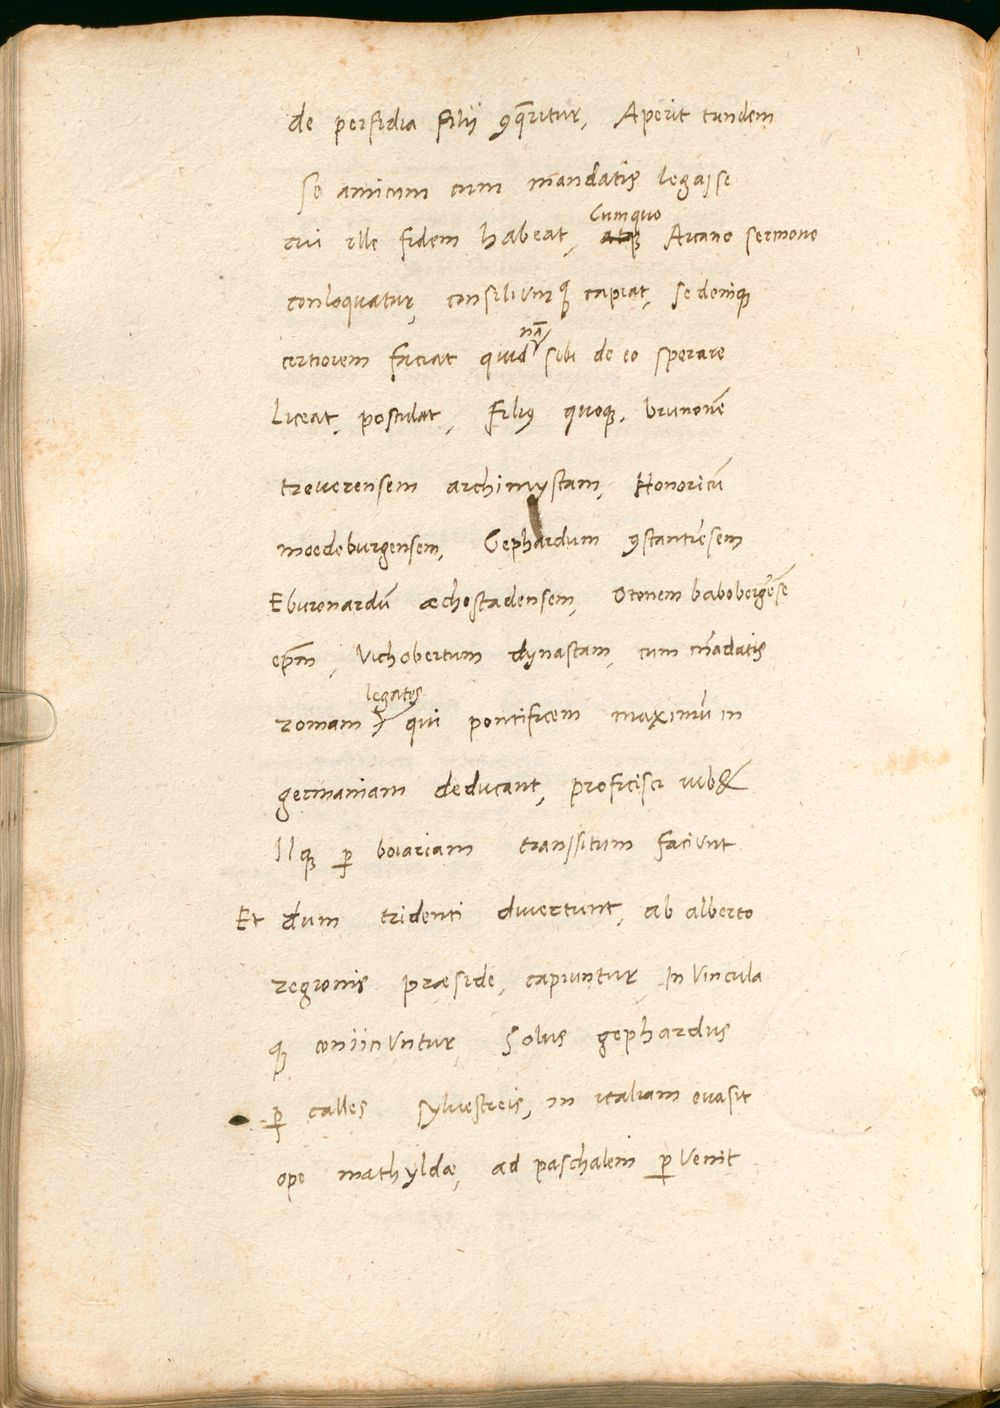 de perfidia filij ꝯq̄ritur, Aperit tandem
se amicum cum mandatis legasse
cui ille fidem habeat, Cumquo atqꝫ Arcano sermone
conloquatur, consilium qꝫ capiat, se deniqꝫ
certiorem faciat quid nā sibi de eo sperare
Liceat, postulat, filiꝰ quoqꝫ, brunonē
treverensem archimystam, Honoricū
moedeburgensem, Gephardum ꝯstantiēsem
Eburonardū æchostadensem, Otonem babobergēsē
ep̄m, Vichobertum dynastam, cum mādatis
romam legatos qui pontificem maximū in
germaniam deducant, proficisci iub&
Ilqꝫ ꝑ boiariam transsitum faciunt
Et dum tridenti divertunt, ab alberto
regionis præside, capiuntur, In vincula
qꝫ coniiciuntur, Solus gephardus
ꝑ calles sylvestreis, in italiam evasit
ope mathyldæ, ad paschalem ꝑvenit